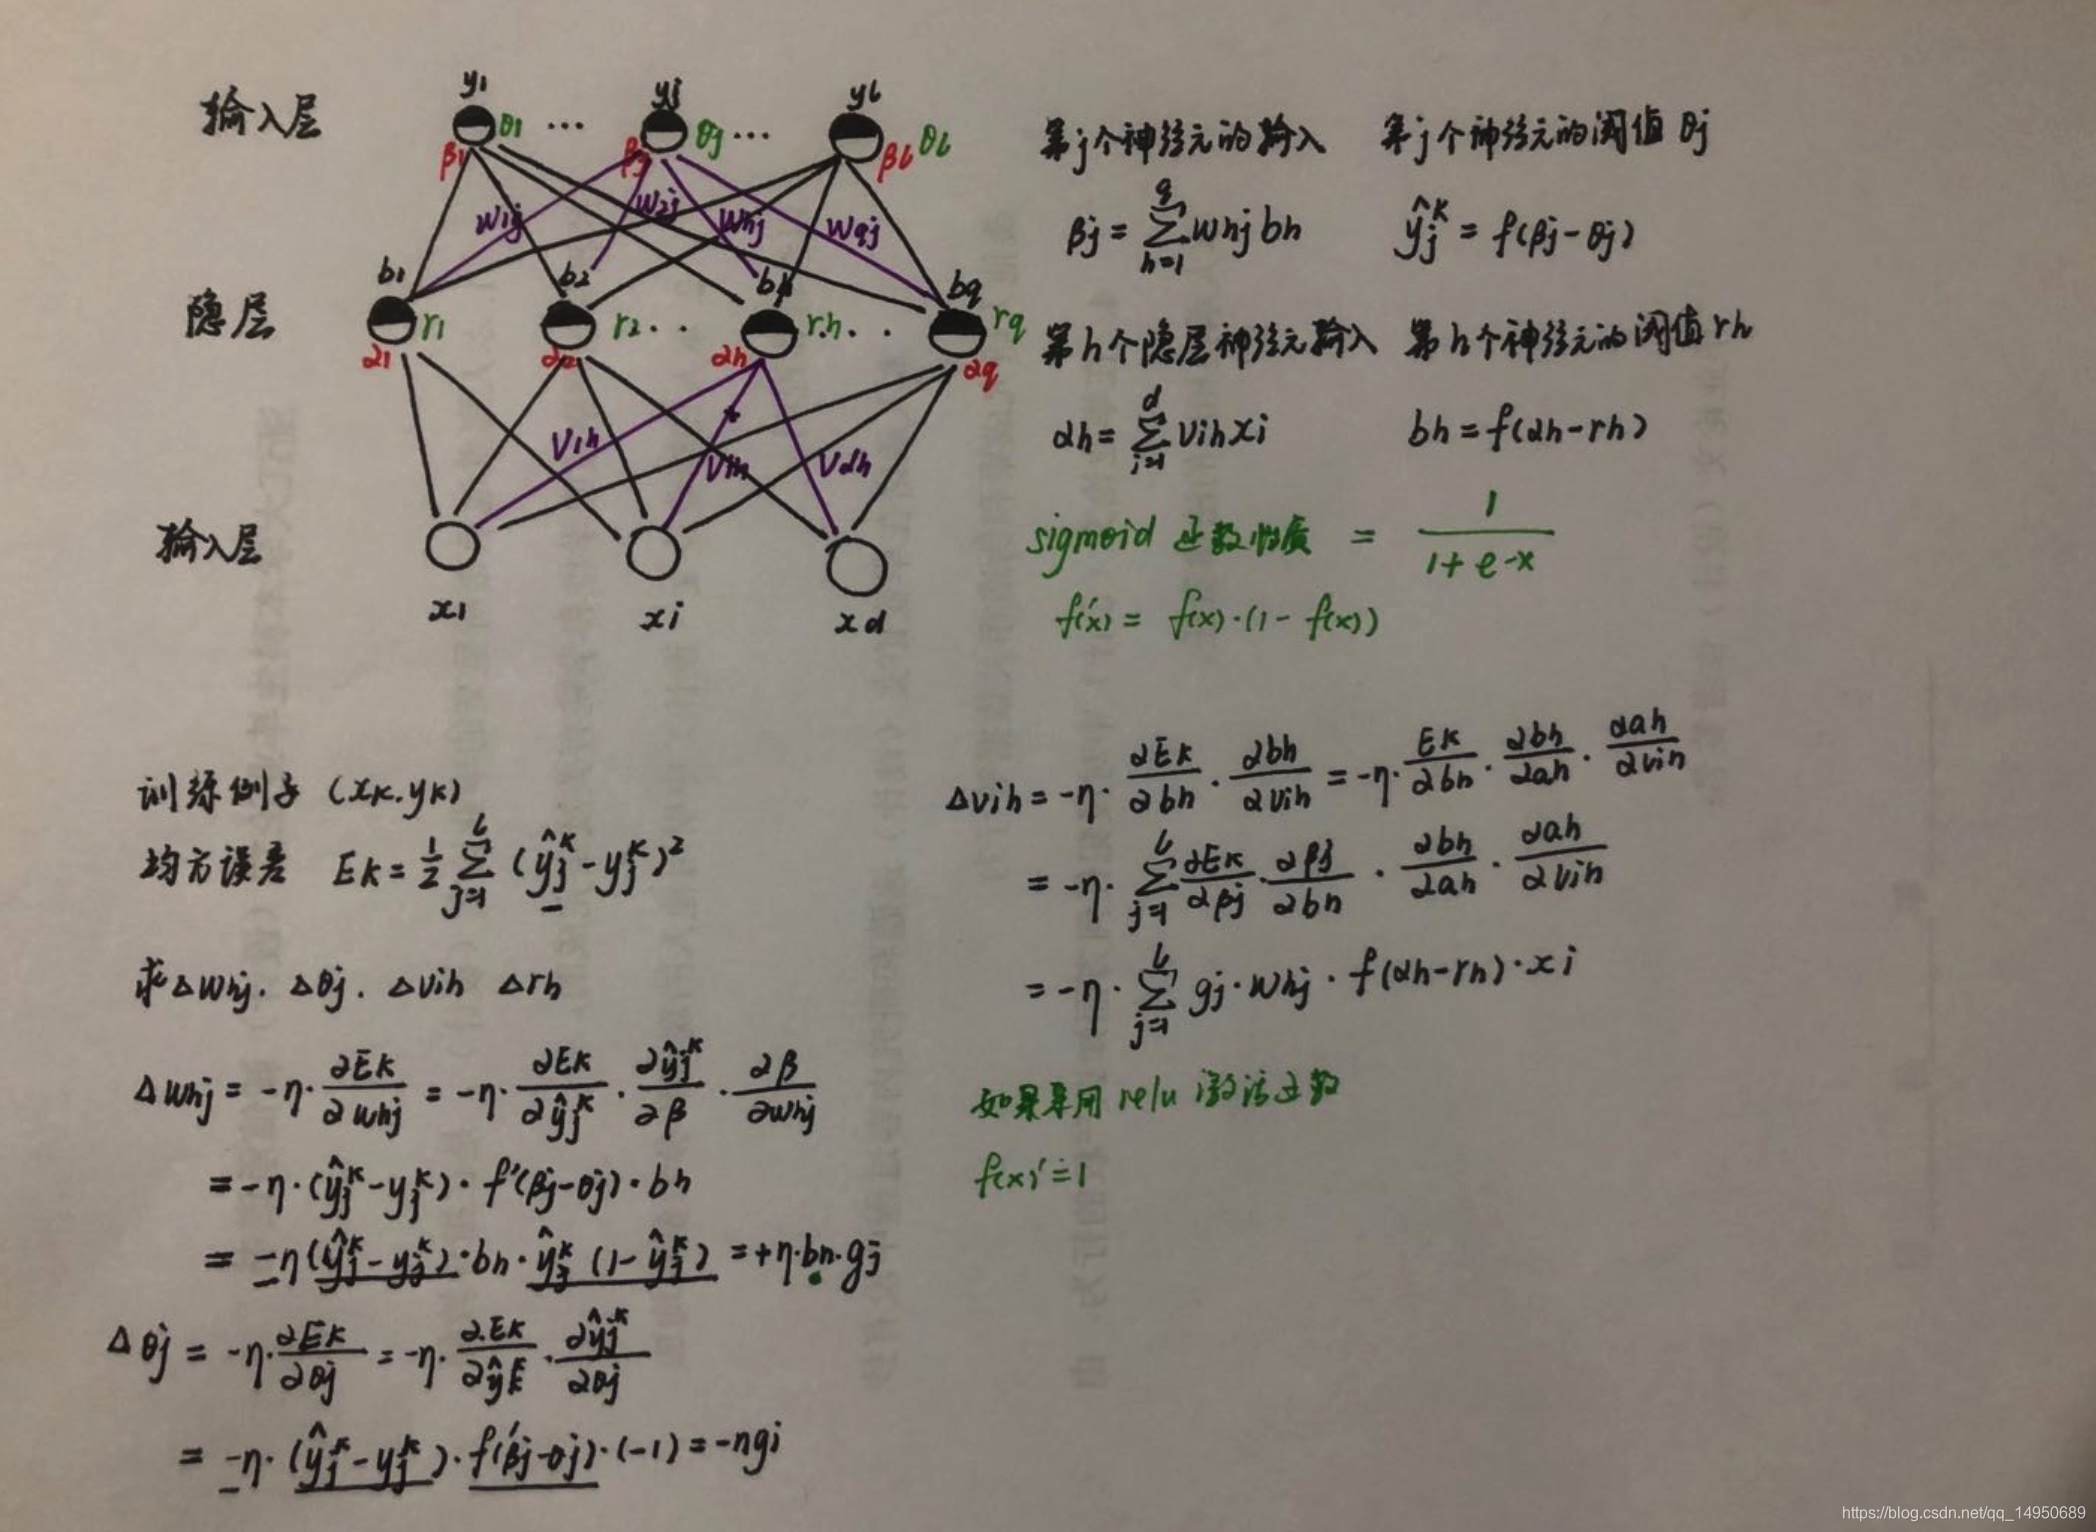 输入层 y1 yj yl
θ1 ... θj ... θl
β1 βj βl
w1j w2j whj wqj
隐层 b1 b2 bh bq
r1 r2 . . rh . . rq
α1 α2 αh αq
v1h vih vdh
输入层
x1 xi xd
第j个神经元的输入 第j个神经元的阈值 θj
βj = Σ_{h=1}^{q} whj bh ŷj^k = f(βj-θj)
第h个隐层神经元输入 第h个神经元的阈值 rh
αh = Σ_{i=1}^{d} vih xi bh = f(αh-rh)
sigmoid 函数性质 = 1/(1+e-x)
f'(x) = f(x)·(1-f(x))
训练例子 (xk,yk)
均方误差 Ek = 1/2 Σ_{j=1}^{l} (ŷj^k-yj^k)^2
求Δwhj. Δθj. Δvih Δrh
Δwhj = -η·∂Ek/∂whj = -η·∂Ek/∂ŷj^k·∂ŷj^k/∂β·∂β/∂whj
= -η·(ŷj^k-yj^k)·f'(βj-θj)·bh
= -η(ŷj^k-yj^k)·bh·ŷj^k(1-ŷj^k) = +η·bh·gj
Δθj = -η·∂Ek/∂θj = -η·∂Ek/∂ŷj^k·∂ŷj^k/∂θj
= -η·(ŷj^k-yj^k)·f'(βj-θj)·(-1) = -ηgj
Δvih = -η·∂Ek/∂bh·∂bh/∂vih = -η·Ek/∂bh·∂bh/∂ah·∂ah/∂vih
= -η·Σ_{j=1}^{l} ∂Ek/∂βj·∂βj/∂bh·∂bh/∂ah·∂ah/∂vih
= -η·Σ_{j=1}^{l} gj·whj·f(αh-rh)·xi
如果采用 relu 激活函数
f(x)'=1
https://blog.csdn.net/qq_14950689